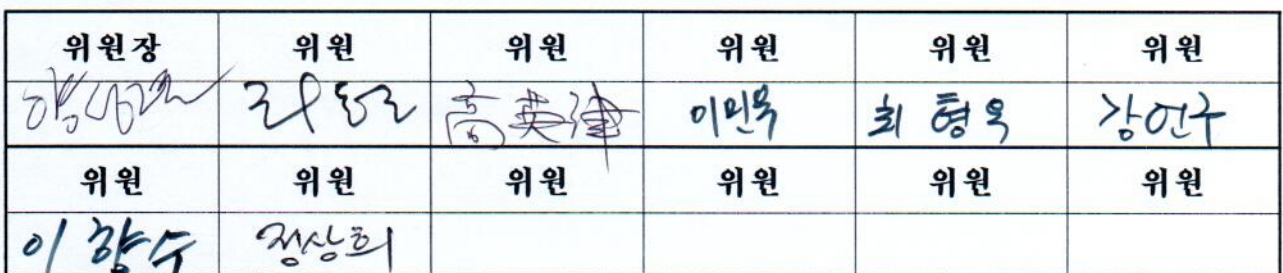 위원장 위원 위원 위원 위원 위원
高英津 이민욱 최형욱 강연구
위원 위원 위원 위원 위원 위원
이향수 정상희